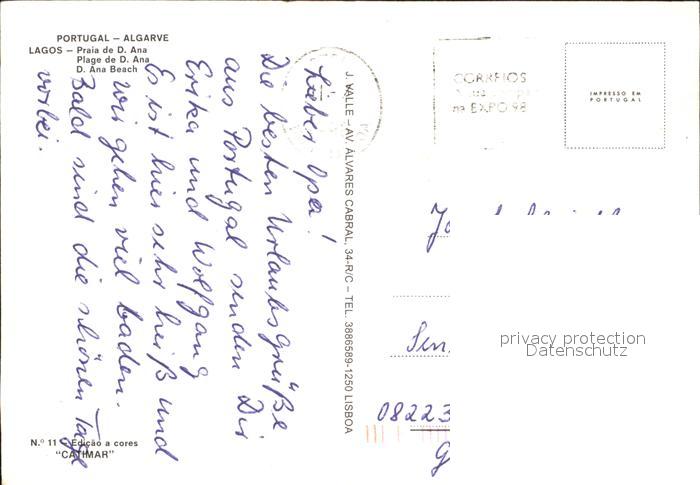 PORTUGAL – ALGARVE
LAGOS – Praia de D. Ana
Plage de D. Ana
D. Ana Beach
Lieber Opa!
Die besten Urlaubsgrüße
aus Portugal senden Dir
Erika und Wolfgang
Es ist hier sehr heiß und
wir gehen viel baden.
Bald sind die schönen Tage
vorbei.
N.º 11 – Edição a cores
"CATIMAR"
J. VALLE – AV. ÁLVARES CABRAL, 34-R/C – TEL. 3886589-1250 LISBOA
CORREIOS
na EXPO 98
IMPRESSO EM
PORTUGAL
Sen.
08223
privacy protection
Datenschutz